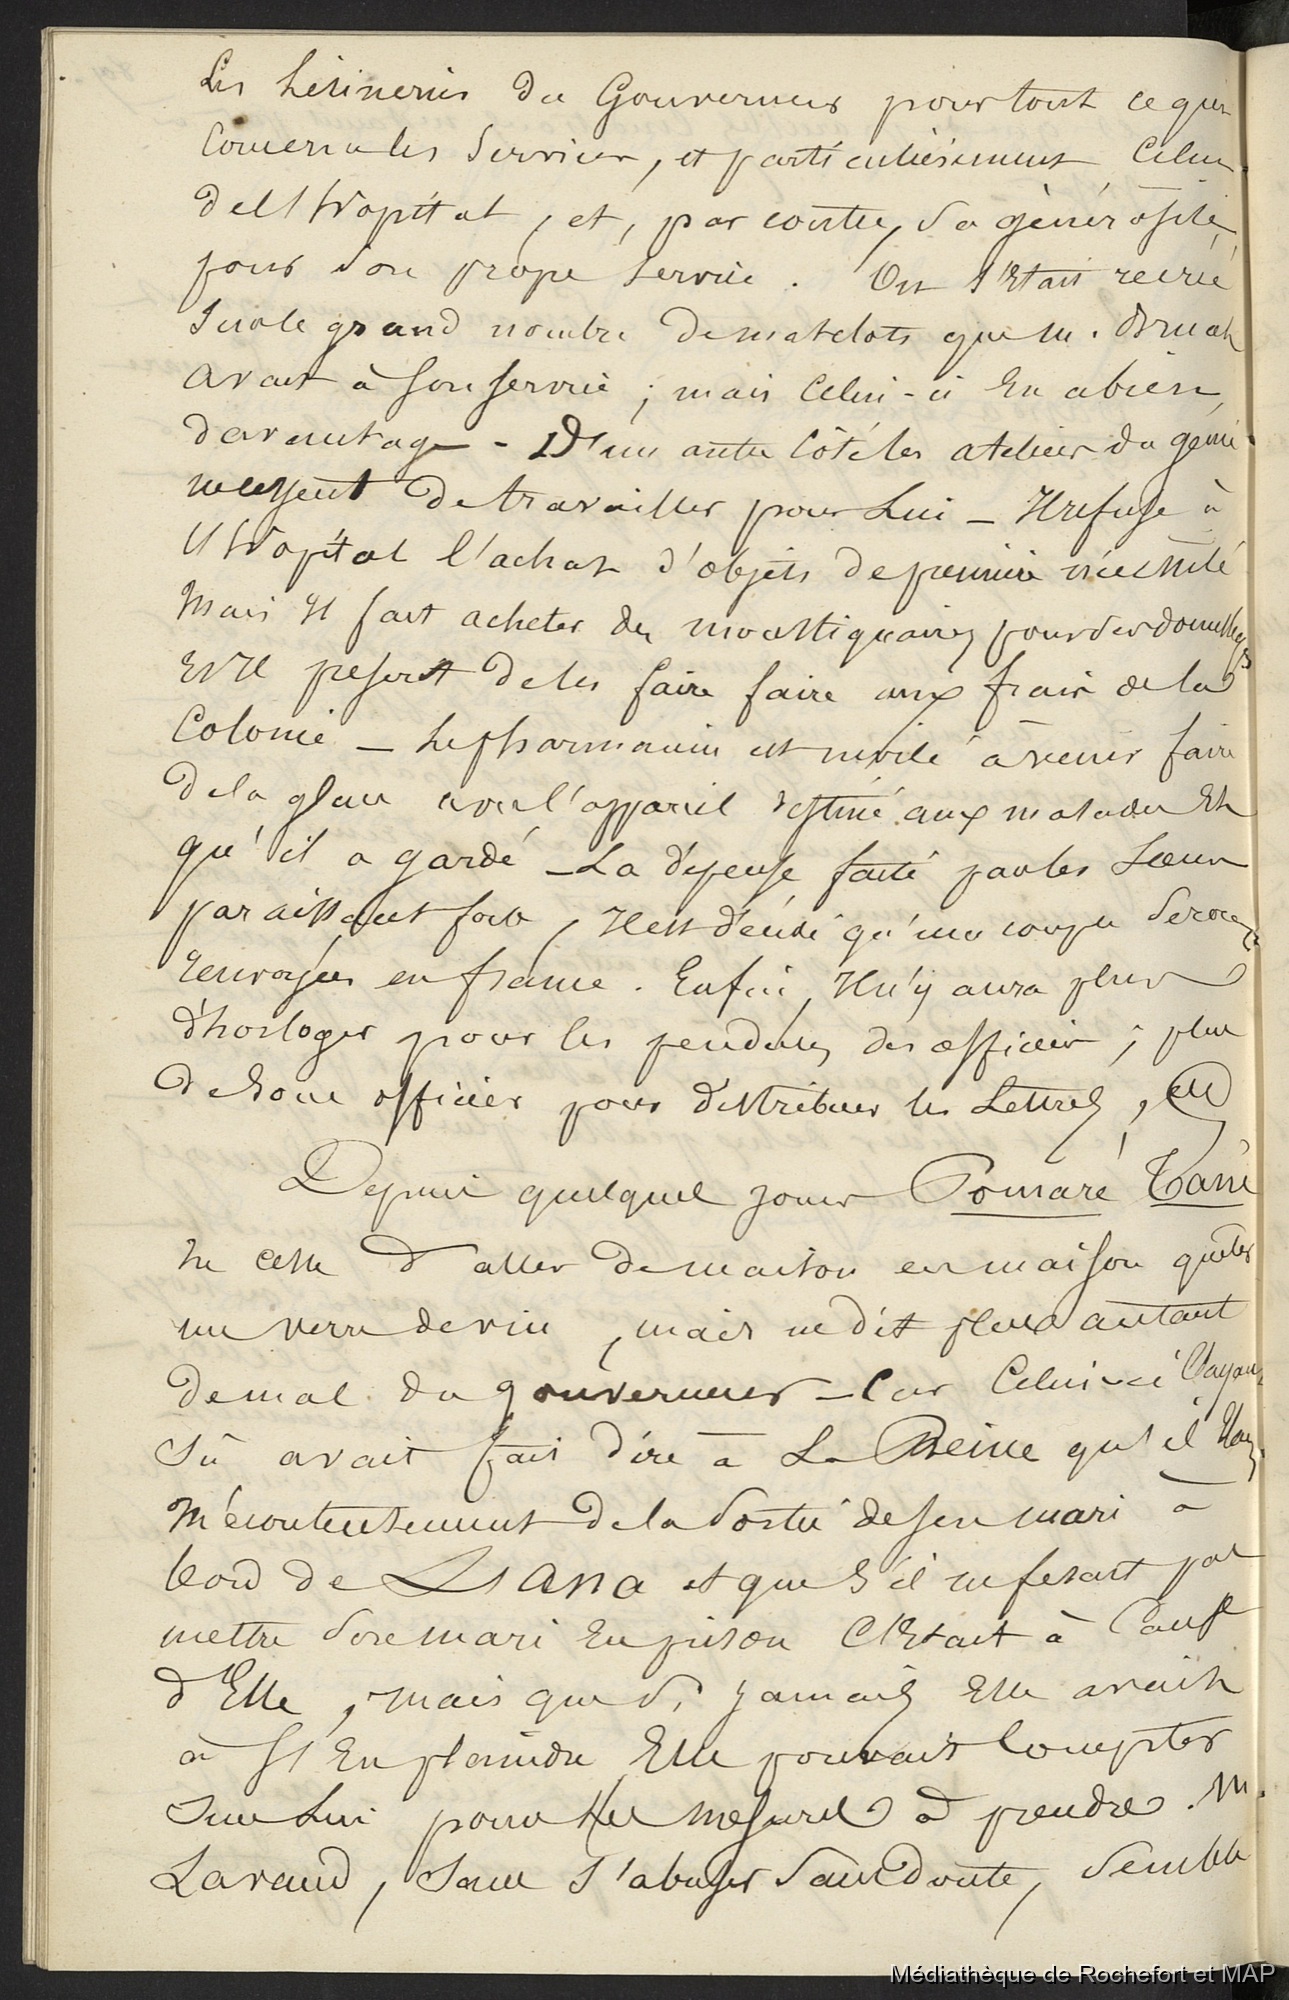 Les lésineries du Gouverneur pour tout ce qui
concerne les services, et particulièrement celui
de l'hôpital, et, par contre, sa générosité
pour son propre service. On s'était récrié
sur le grand nombre de matelots que M. Bruat
avait à son service ; mais celui-ci en a bien
davantage - D'un autre côté les ateliers du génie
ne cessent de travailler pour lui - Il refuse à
l'hôpital l'achat d'objets de première nécessité
Mais il fait acheter des moustiquaires pour ses domestiques
Et il prescrit de les faire faire aux frais de la
Colonie - Le pharmacien est invité à venir faire
de la glace avec l'appareil destiné aux malades Et
qu'il a gardé - La dépense faite par les Sœurs
paraissant forte, Il est décidé qu'un couple seront
renvoyées en france. Enfin, Il n'y aura plus
d'horloger pour les pendules des officiers ; plus
de sous officier pour distribuer les Lettres,
Depuis quelques jours Pomaré Tané
ne cesse d'aller de maison en maison quêter
un verre de vin, mais ne dit plus autant
de mal du gouverneur - Car Celui-ci l'ayant
su avait fait dire à La Reine qu'il était
mécontent de la sortie de son mari à
bord de et que s'il ne fesait pas
mettre son mari En prison C'Etait à Cause
d'Elle, mais que si jamais Elle avait
à s'En plaindre Elle pouvait compter
sur Lui pour les mesures à prendre. M.
Lavaud, sans s'abuser sans doute, semble
Médiathèque de Rochefort et MAP